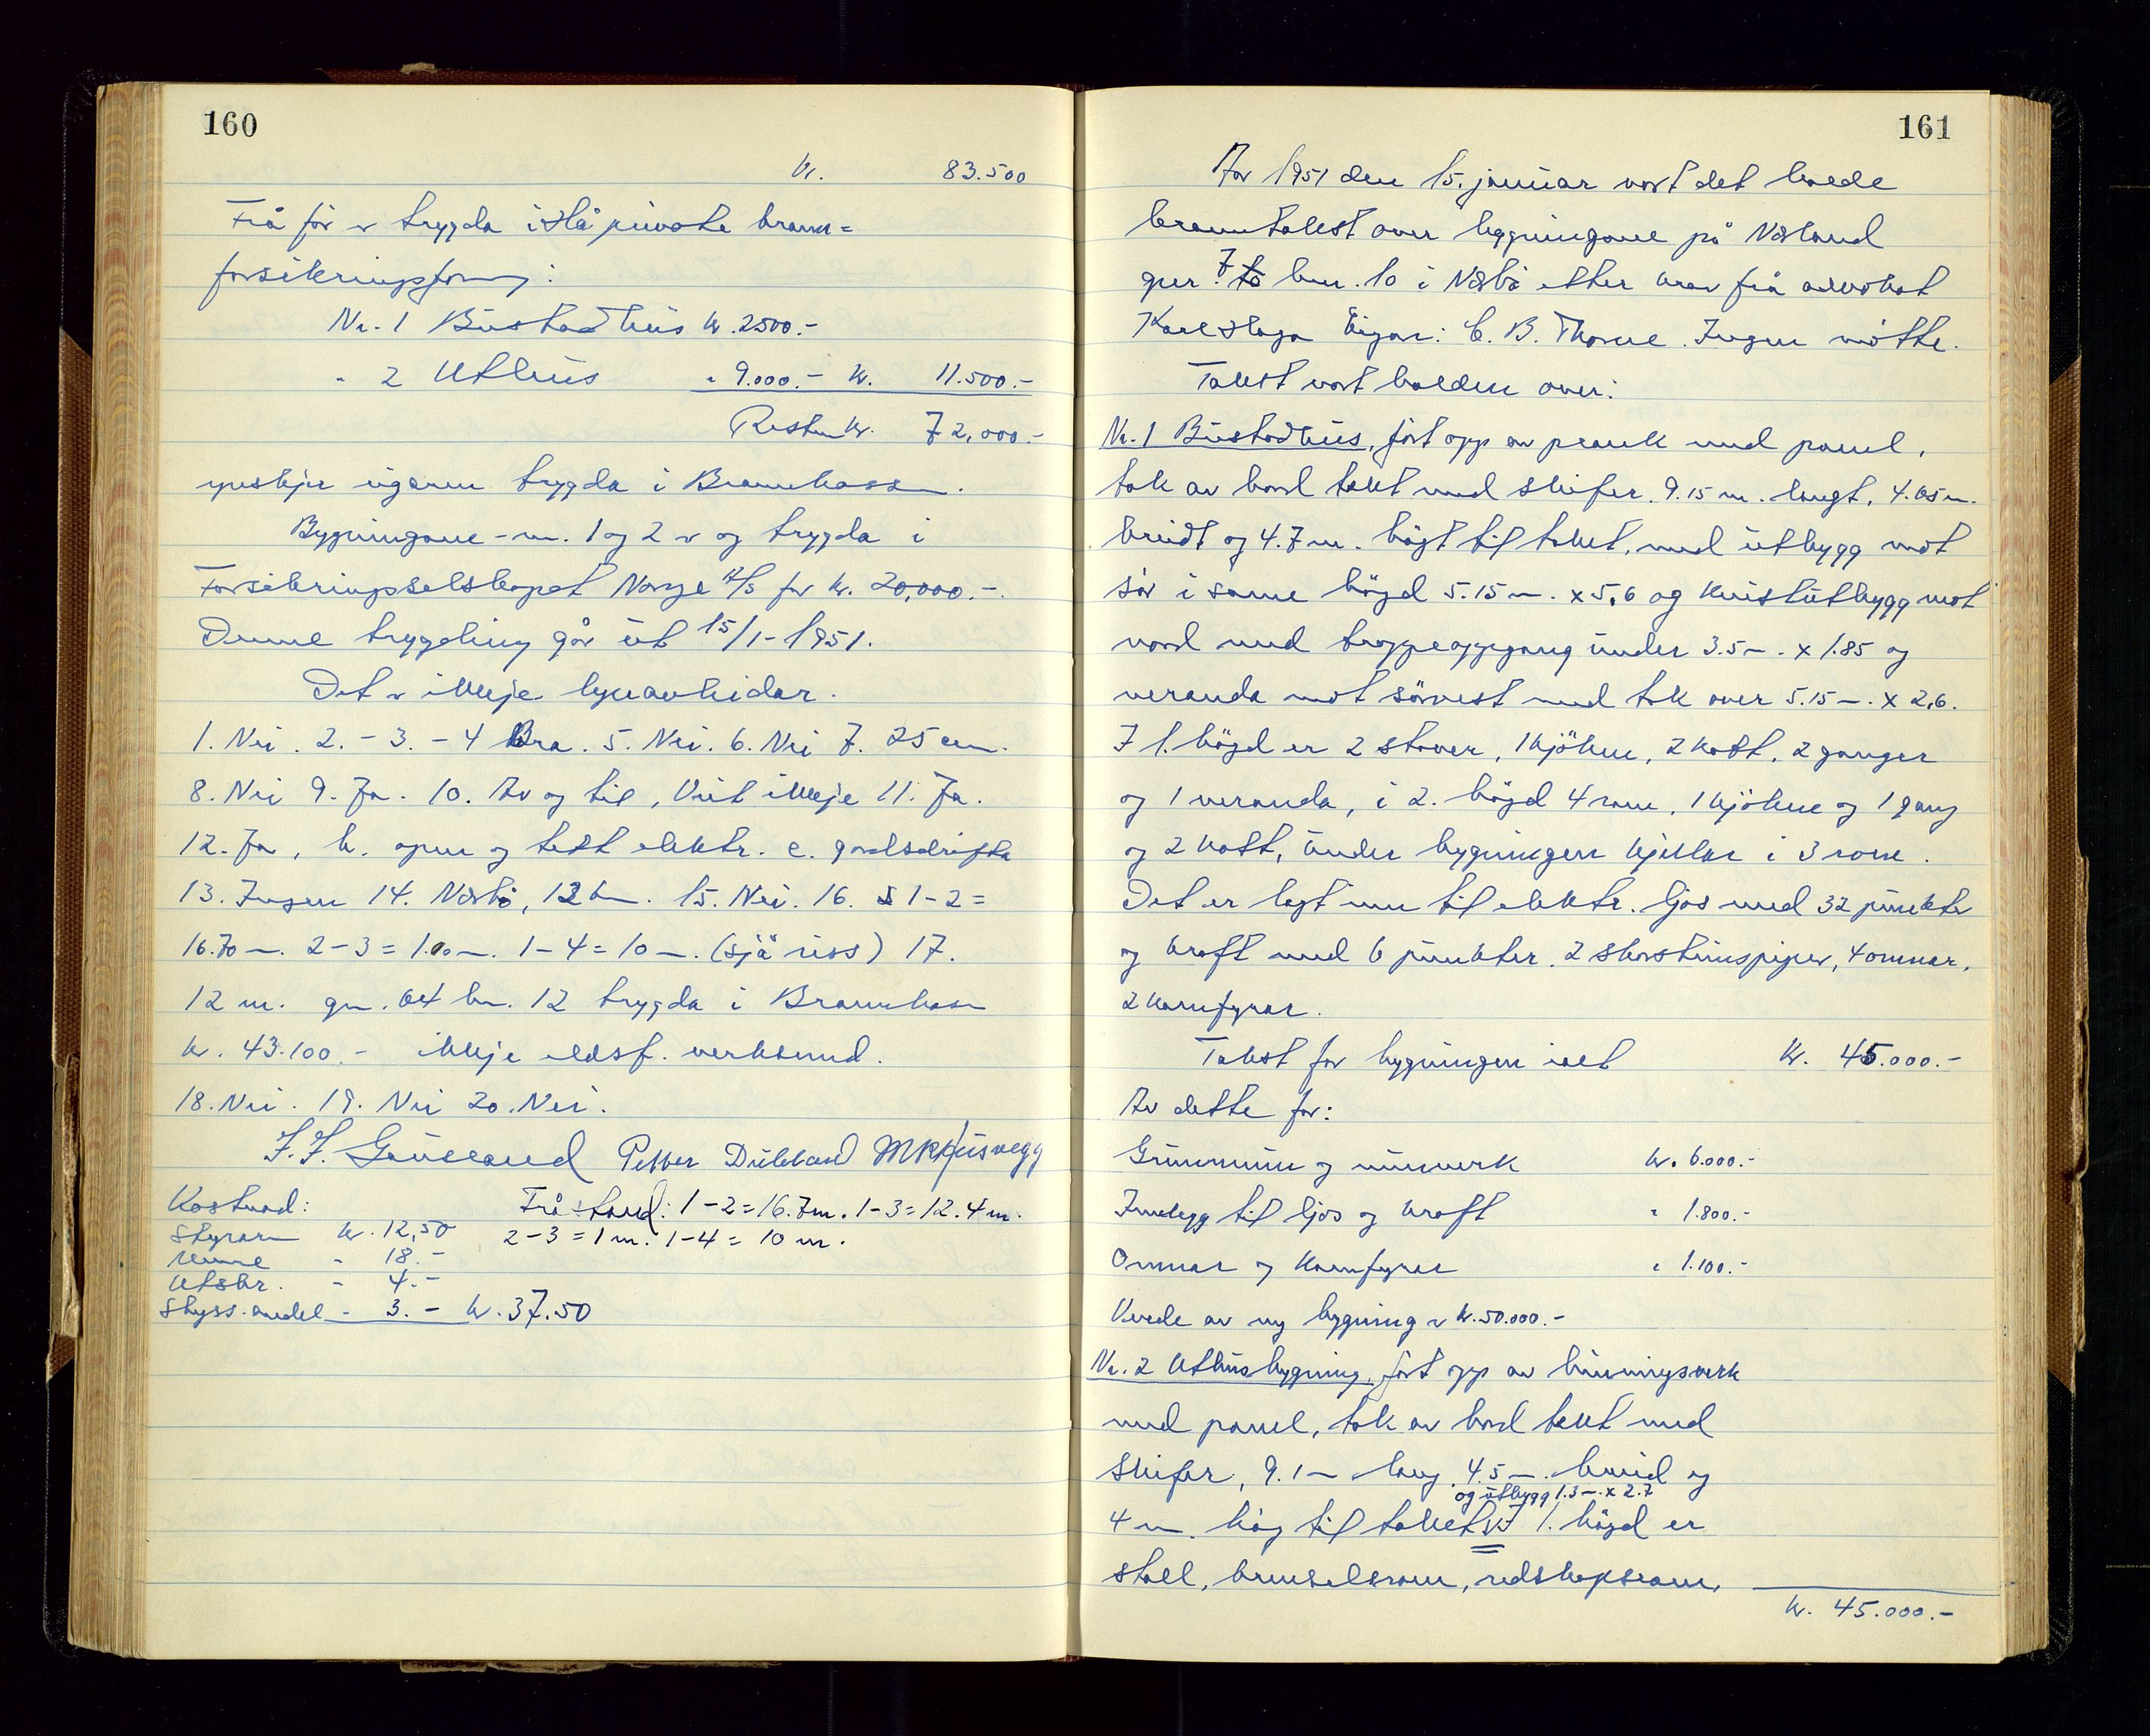 160
Kr. 83.500
Frå før er trygda i Hå private brann=
forsikringsforening:
Nr. 1 Bustadhus kr. 2500.-
" 2 Uthus " 9.000.- kr. 11.500.-
Resten kr. 72,000.-
ynskjer eigaren trygda i Brannkassen.
Bygningane - nr. 1 og 2 er og trygda i
Forsikringselskapet Norge A/S for kr. 20,000.-.
Denne trygding går ut 15/1-1951.
Det er ikkje lynavleidar.
1. Nei. 2. - 3. - 4 Bra. 5. Nei. 6. Nei 7. 25 cm.
8. Nei 9. Ja. 10. Av og til, Veit ikkje 11. Ja.
12. Ja, b. open og tett elektr. c. gardsdrifta
13. Ingen 14. Nærbø, 12 km. 15. Nei. 16. 1-2=
16.70 m. 2-3=1.00 m. 1-4=10 m. (sjå riss) 17.
12 m. gnr. 64 bnr. 12 trygda i Brannkassen
kr. 43.100.- ikkje eldsf. verksemd.
18. Nei. 19. Nei 20. Nei.
J. J. Grusland Petter Dubland M K Husvegg
Kostnad: Fråstand: 1-2=16.7m. 1-3=12.4m.
Styraren kr. 12,50 2-3=1m. 1-4=10 m.
Menne " 18.-
Utskr. " 4.-
Skyss.andel - 3.- kr. 37.50
161
År 1951 den 15. januar vart det halde
branntakst over bygningane på Næland
gnr. 7 bnr. 10 i Nærbø etter krav frå advokat
Karl Haga Eigar: C. B. Thorne. Ingen møtte.
Takst vart halden over:
Nr. 1 Bustadhus, ført opp av plank med panel,
tak av bord tekt med skifer. 9.15 m. langt, 4.05 m.
breidt og 4.7 m. högt til taket, med utbygg mot
sör i same högd 5.15 m. x 5,6 og kvistutbygg mot
nord med trappeoppgang under 3.5 m. x 1.85 og
veranda mot sörvest med tak over 5.15 m. x 2,6.
I 1. högd er 2 stover, 1 kjöken, 2 kott, 2 ganger
og 1 veranda, i 2. högd 4 rom, 1 kjöken og 1 gang
og 2 kott, under bygningen kjellar i 3 rom.
Det er lagt inn til elektr. ljos med 32 punkter
og kraft med 6 punkter. 2 skorsteinspiper, 4 omnar,
2 komfyrar.
Takst for bygningen i alt Kr. 45.000.-
Av dette for:
Grunnmur og murverk kr. 6.000.-
Innlegg til ljos og kraft " 1.800.-
Omnar og komfyrar " 1.100.-
Verde av ny bygning er kr. 50.000.-
Nr. 2 Uthusbygning, ført opp av bindingsverk
med panel, tak av bord tekt med
skifer, 9.1 m lang, 4.5 m. breid og
og utbygg 1.3 m. x 2.7
4 m. høg til taket. I 1. högd er
stall, brenselsrom, redskapsrom,
kr. 45.000.-